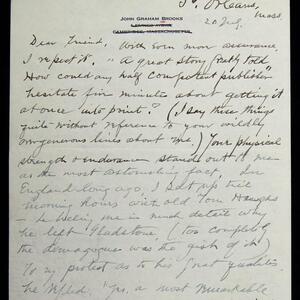 So. Orleans,
Mass.
JOHN GRAHAM BROOKS
CAMBRIDGE, MASSACHUSETTS
20 July.
Dear Friend. With even more assurance,
I repeat it. "A great story greatly told"
How could any half competent publisher
hesitate for minutes about getting it
at once into print? (I say these things
quite without reference to your wildly
erroneous lines about me.) Your physical
strength & endurance stands out to me
as the most astonishing fact. In
England long ago, I sat up till
morning hours with old Tom Hughes
– he telling me in much detail why
he left Gladstone (too completely
the demagogue was the gist of it)
To my protest as to his great qualities
he replied "Yes, a most remarkable